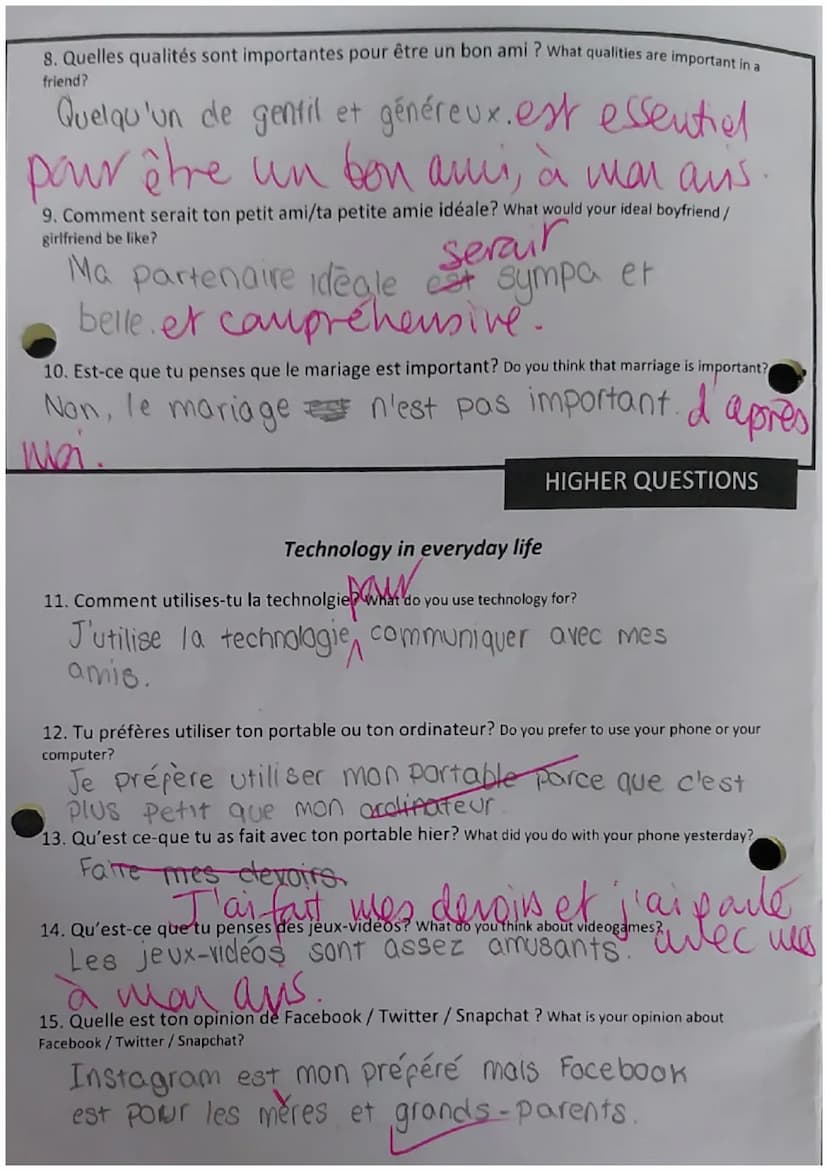 8. Quelles qualités sont importantes pour être un bon ami ? What qualities are important in a
friend?
Quelqu'un de gentil et généreux. est essentiel
pour être un bon ami, à mon avis.
9. Comment serait ton petit ami/ta petite amie idéale? What would your ideal boyfriend /
girlfriend be like?
serait
Ma partenaire idéale est sympa et
belle. et compréhensive.
10. Est-ce que tu penses que le mariage est important? Do you think that marriage is important?
Non, le mariage n'est pas important. d'après
moi.
HIGHER QUESTIONS
Technology in everyday life
pour
11. Comment utilises-tu la technolgie? What do you use technology for?
J'utilise la technologie communiquer avec mes
amis.
12. Tu préfères utiliser ton portable ou ton ordinateur? Do you prefer to use your phone or your
computer?
Je prépère utiliser mon portable parce que c'est
plus petit que mon ordinateur.
13. Qu'est ce-que tu as fait avec ton portable hier? What did you do with your phone yesterday?
Faire mes devoirs.
J'ai fait mes devoirs et j'ai parlé
14. Qu'est-ce que tu penses des jeux-vidéos? What do you think about videogames?
avec mes
Les jeux-vidéos sont assez amusants.
à mon avis.
15. Quelle est ton opinion de Facebook / Twitter / Snapchat ? What is your opinion about
Facebook / Twitter / Snapchat?
Instagram est mon prépéré mais Facebook
est pour les mères et grands-parents.